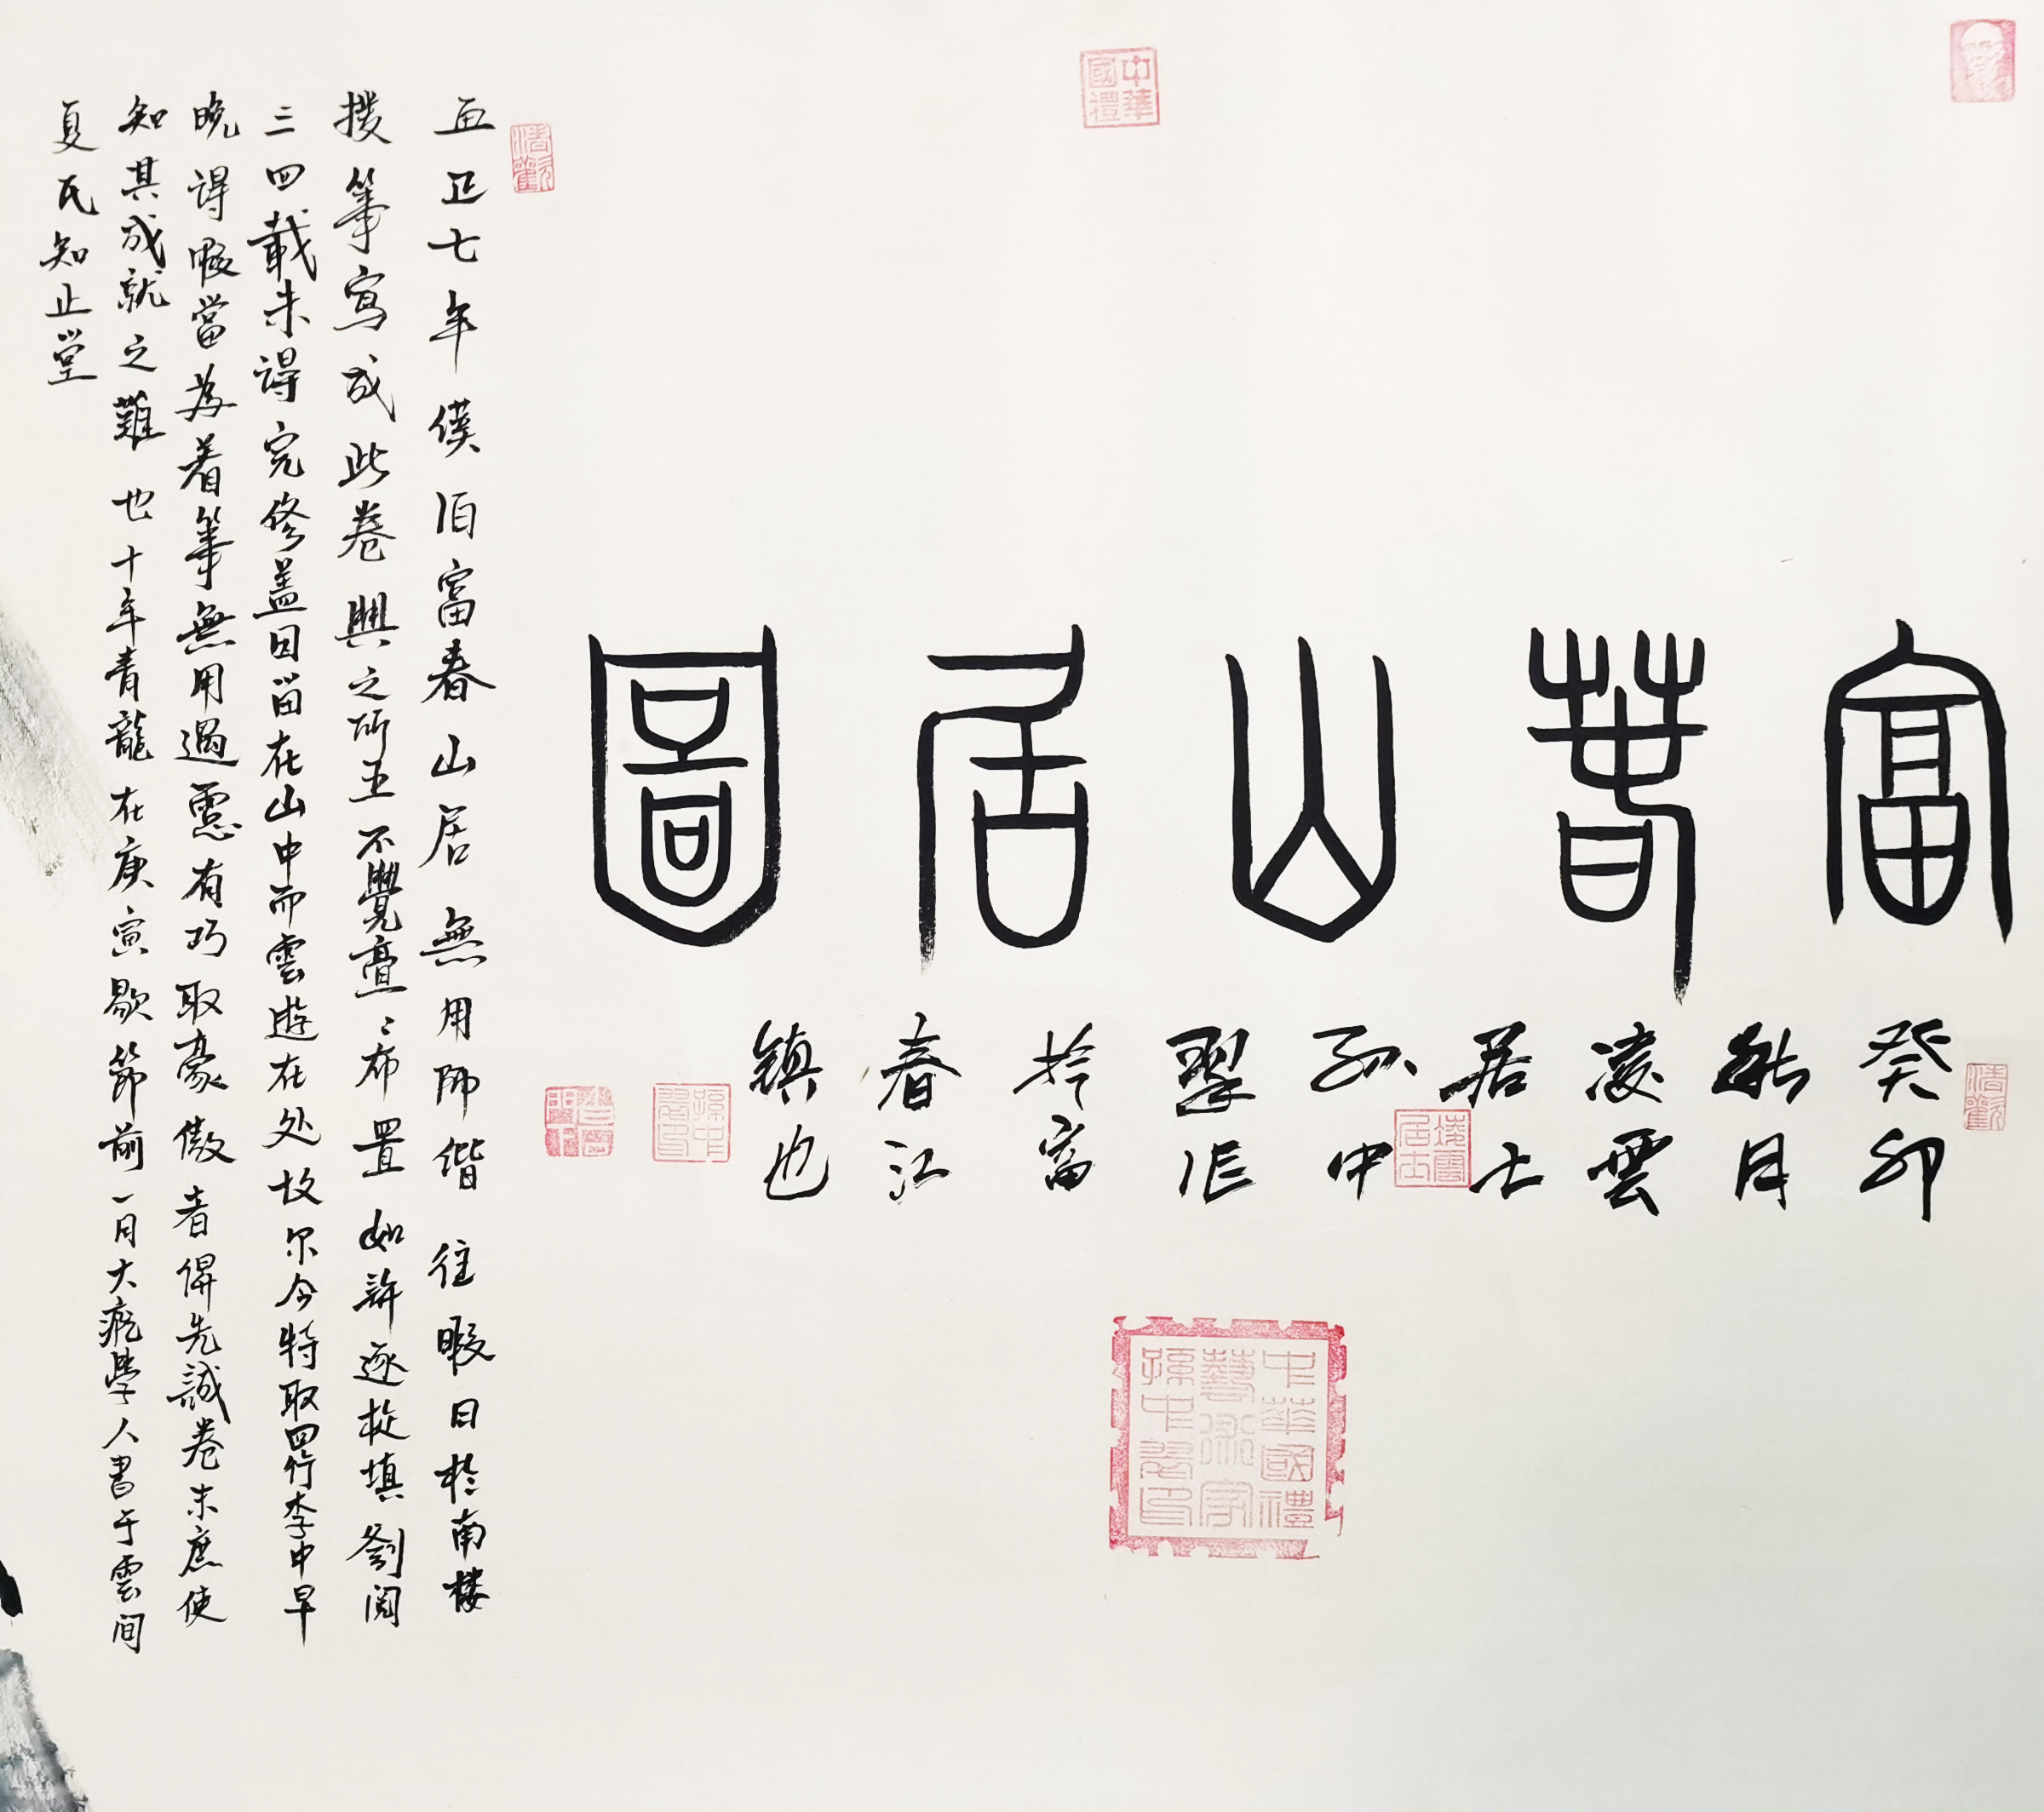 富春山居圖
癸卯
秋月
凌雲
居士
孫中
作
於富
春江
鎮也
至正七年僕歸富春山居無用師偕往暇日於南楼
援筆寫成此卷興之所至不覺亹〻布置如許逐旋填劄閱
三四載未得完俻盖因留在山中而雲遊在处故尔今特取回行李中早
晚得暇當為着筆無用過慮有巧取豪傲者俾先識卷末庶使
知其成就之難也十年青龍在庚寅歜節前一月大癡學人書于雲間
夏氏知止堂
中華國禮
凌雲居士
中華國禮
藝術家
孫中印